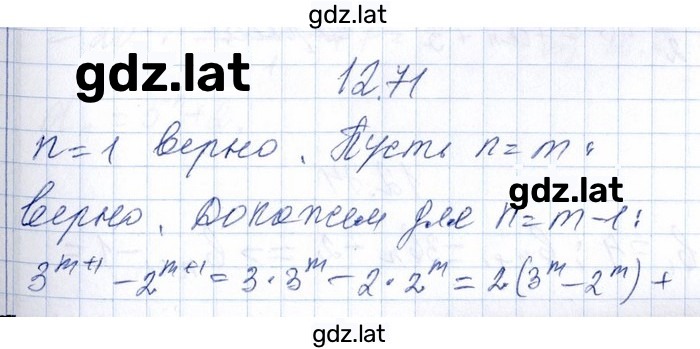 gdz.lat
gdz.lat
12.71
n=1 верно. Пусть n=m:
gdz.lat
верно. Докажем для n=m-1:
3^{m+1} - 2^{m+1} = 3·3^m - 2·2^m = 2(3^m - 2^m) +
gdz.lat